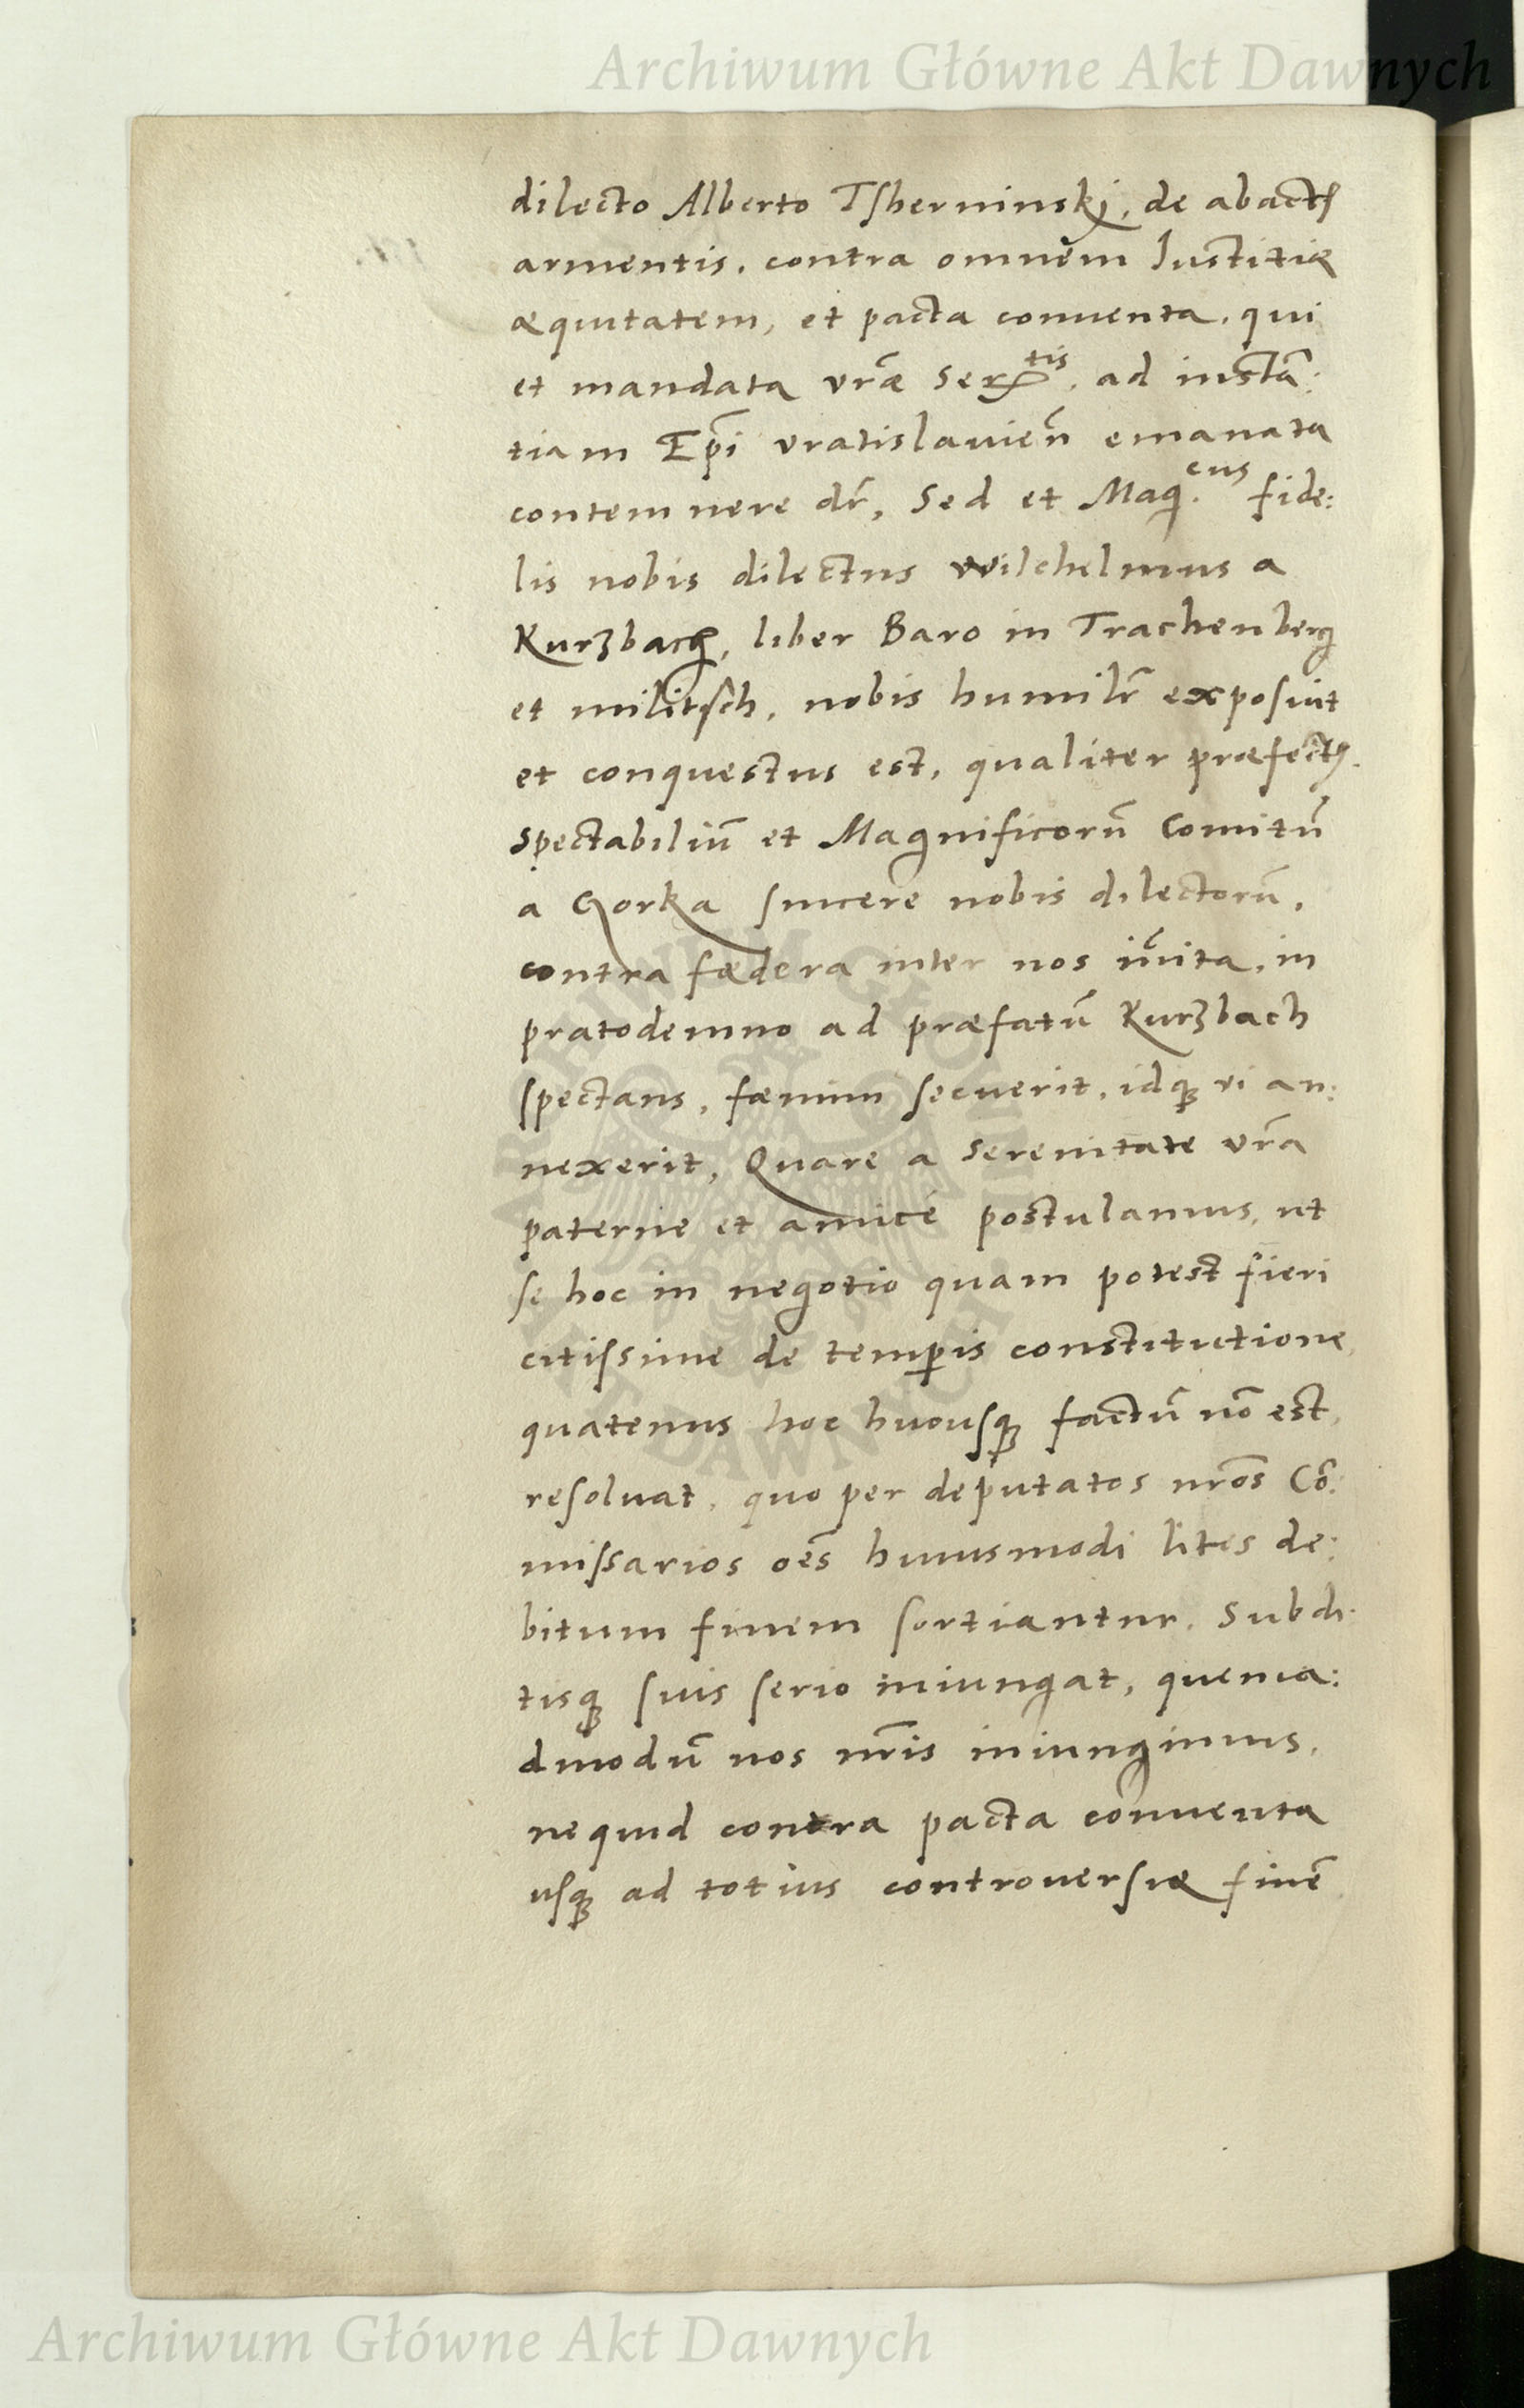 Archiwum Główne Akt Dawnych
dilecto Alberto Tsherninskj, de abactꝭ
armentis, contra omnem Iustitiæ
æquitatem, et pacta conuenta, qui
et mandata vrãe Serᵗⁱˢ. ad instã:
tiam Epĩ vratislauieñ emanata
contemnere dr̃, Sed et Mag.ᶜᵘˢ fide:
lis nobis dilectus Wilchelmus a
Kurʒbach, liber Baro in Trachenberg
et militsch, nobis humilr̃ exposuit
et conquestus est, qualiter præfectꝰ
Spectabiliũ et Magnificorũ Comitũ
a Gorka sincere nobis dilectorũ,
contra fædera inter nos inita, in
prato demno ad præfatũ Kurʒbach
spectans, fænum secuerit, idqꝫ vi an:
nexerit, Quare a Serenitate vr̃a
paterne et amicé postulamus, ut
se hoc in negotio quam potest fieri
citissime de temꝑis constitutione
quatenus hoc hucusqꝫ factũ nõ est,
resoluat, quo per deputatos nr̃os Cõ:
missarios oẽs huiusmodi lites de:
bitum finem sortiantur. Subdi:
tisqꝫ suis serio iniungat, quema:
dmodũ nos nr̃is iniungimus,
ne quid contra pacta conuenta
usqꝫ ad totius controuersiæ finẽ
Archiwum Główne Akt Dawnych